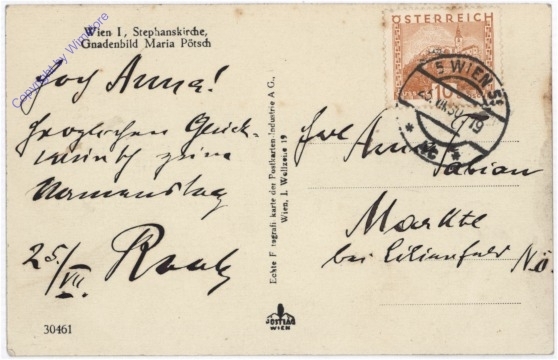 Wien I, Stephanskirche,
Gnadenbild Maria Pötsch
Copyright by Wimmore
Anna!
herzlichen Glück-
wunsch zum
Namenstag
25./VII.
30461
Echte Photografiekarte der Postkarten-Industrie A G.,
Wien, I. Wollzeile 19
POSTIAG
WIEN
ÖSTERREICH
10
5 WIEN 56
VII. 30
19
Frl. Anna
Fabian
Marktl
bei Lilienfeld N.Ö